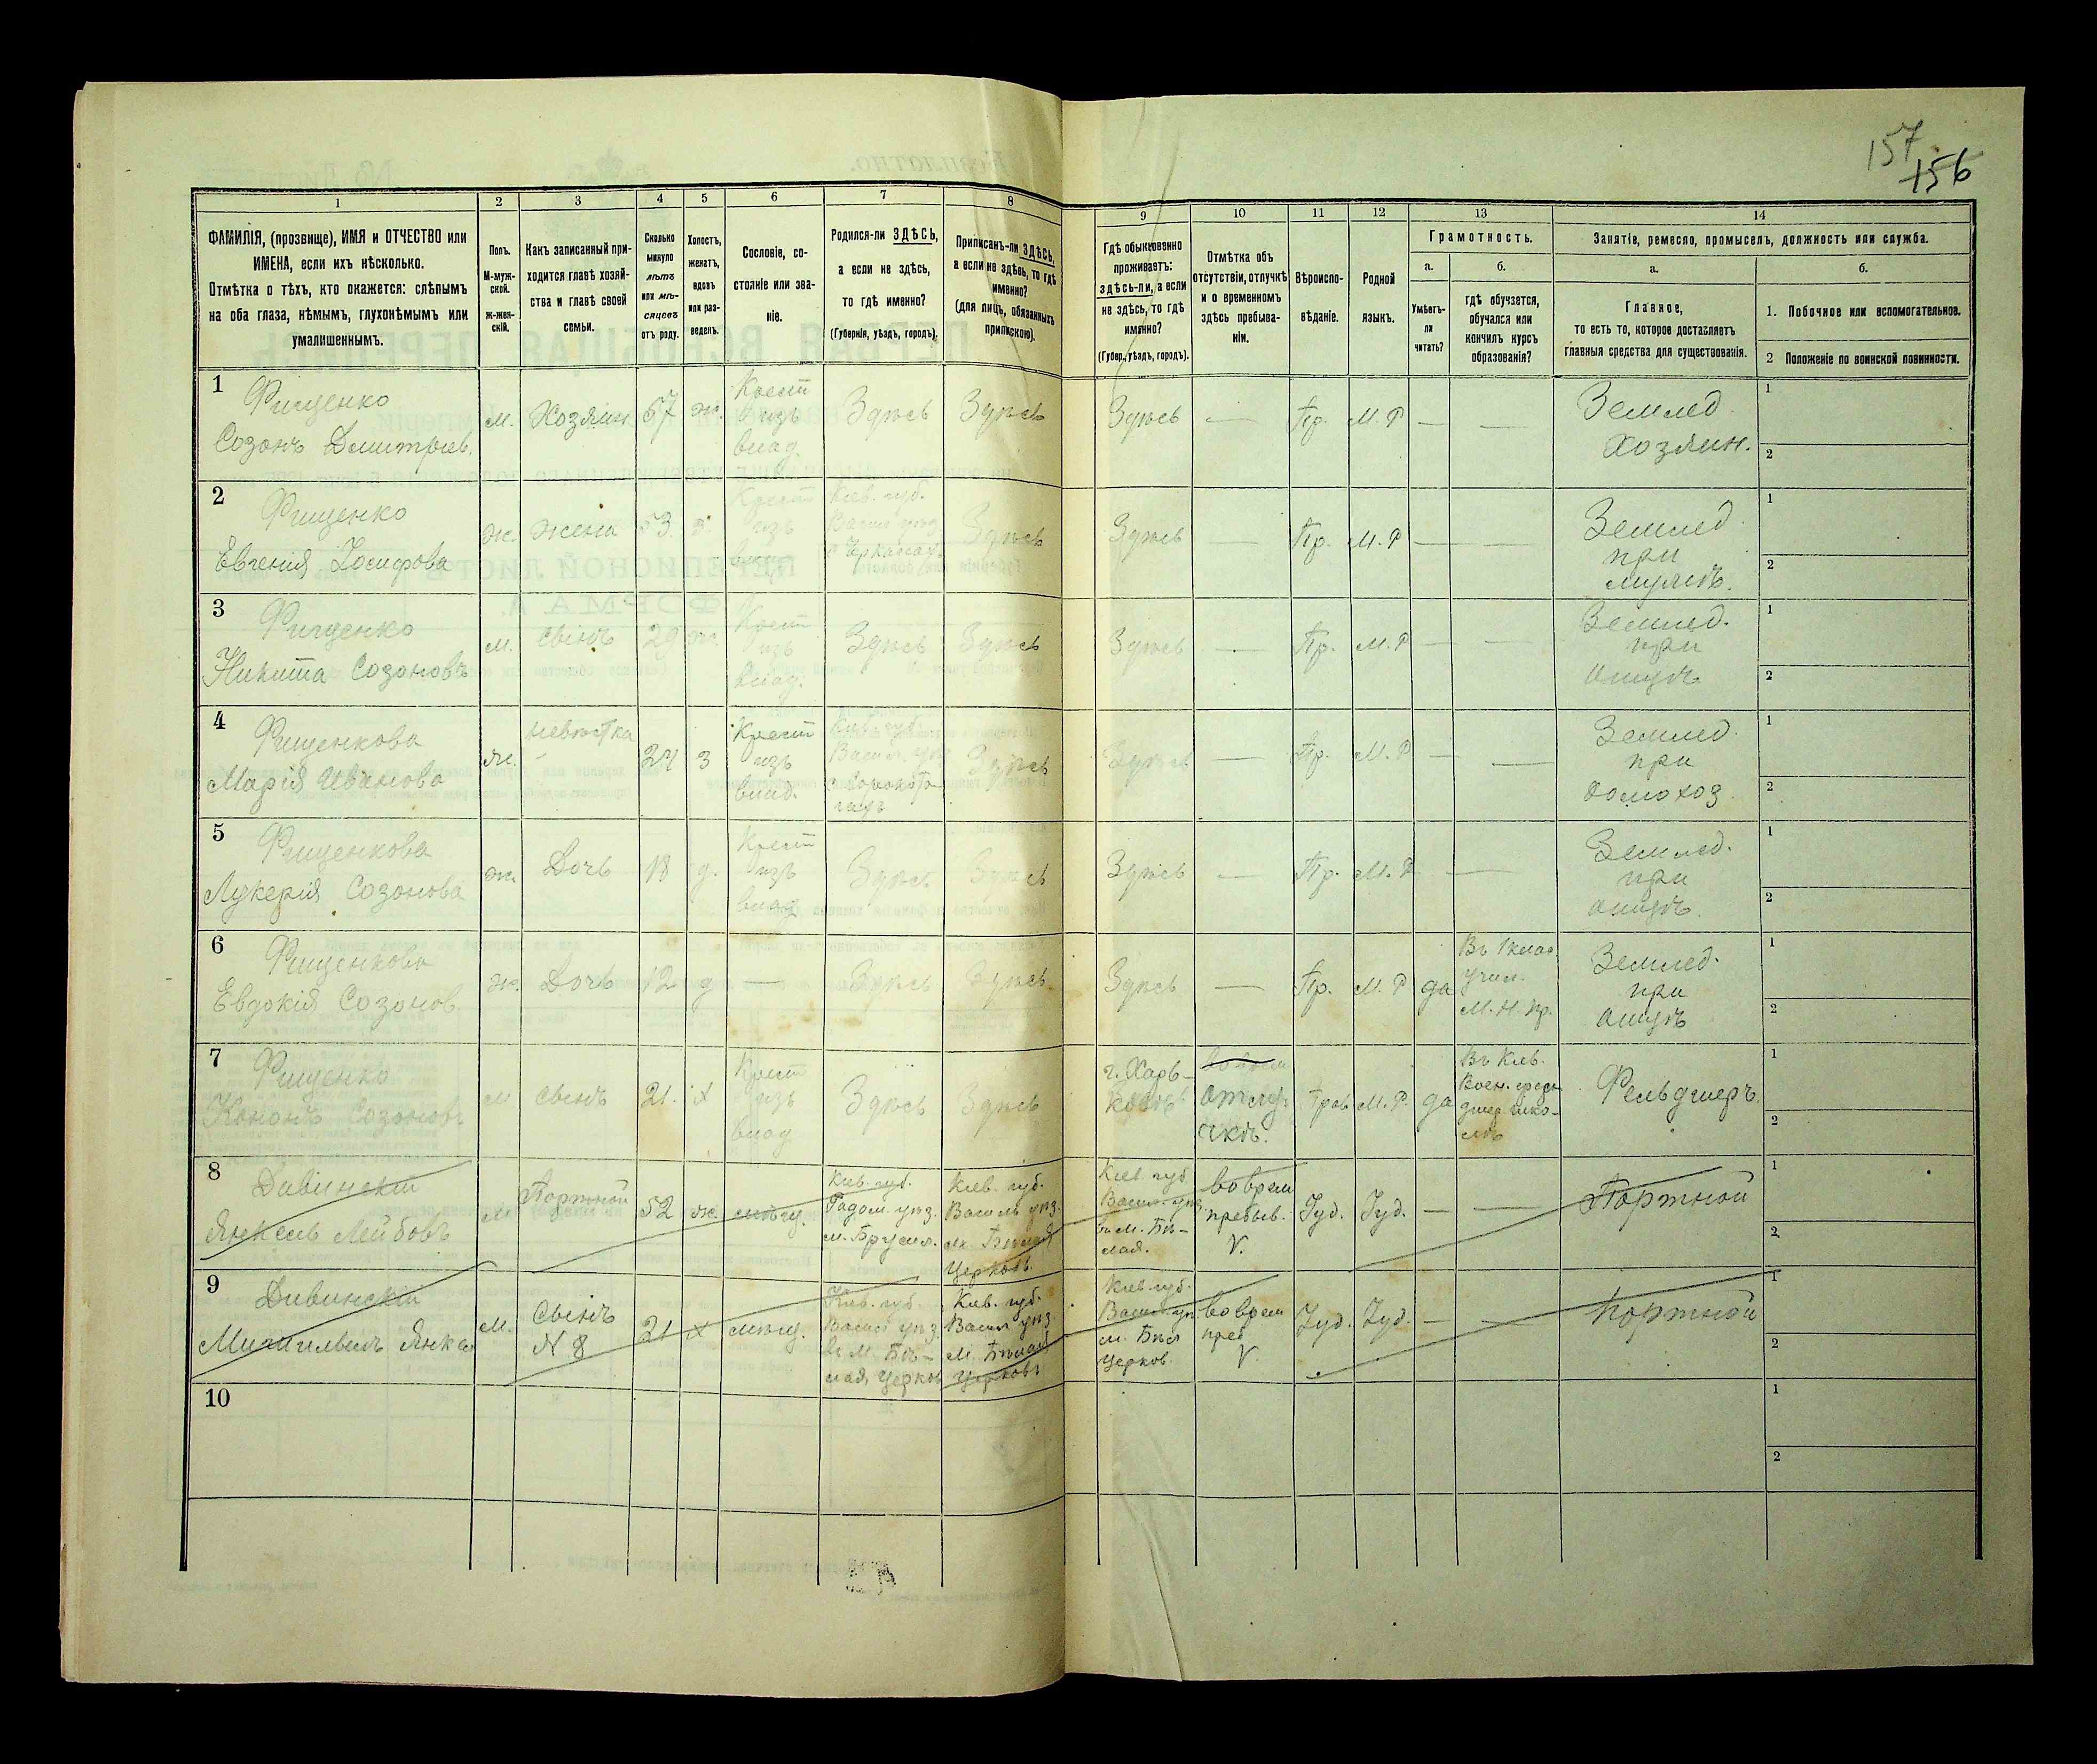 157
156
1
2
3
4
5
6
7
8
9
10
11
12
13
14
ФАМИЛІЯ, (прозвище), ИМЯ и ОТЧЕСТВО или
ИМЕНА, если ихъ нѣсколько.
Отмѣтка о тѣхъ, кто окажется: слѣпымъ
на оба глаза, нѣмымъ, глухонѣмымъ или
умалишеннымъ.
Полъ.
М-муж-
ской.
ж-жен-
скій.
Какъ записанный при-
ходится главѣ хозяй-
ства и главѣ своей
семьи.
Сколько
минуло
лѣтъ
или мѣ-
сяцевъ
отъ роду.
Холостъ,
женатъ,
вдовъ
или раз-
веденъ.
Сословіе, со-
стояніе или зва-
ніе.
Родился-ли ЗДѢСЬ,
а если не здѣсь,
то гдѣ именно?
(Губернія, уѣздъ, городъ).
Приписанъ-ли ЗДѢСЬ,
а если не здѣсь, то гдѣ
именно?
(для лицъ, обязанныхъ
припискою).
Гдѣ обыкновенно
проживаетъ:
здѣсь-ли, а если
не здѣсь, то гдѣ
именно?
(Губер., уѣздъ, городъ).
Отмѣтка объ
отсутствіи, отлучкѣ
и о временномъ
здѣсь пребыва-
ніи.
Вѣроиспо-
вѣданіе.
Родной
языкъ.
Грамотность.
а.
Умѣетъ-
ли
читать?
б.
гдѣ обучается,
обучался или
кончилъ курсъ
образованія?
Занятіе, ремесло, промыселъ, должность или служба.
а.
Главное,
то есть то, которое доставляетъ
главныя средства для существованія.
б.
1. Побочное или вспомогательное.
2 Положеніе по воинской повинности.
1
Фищенко
Созонъ Дмитріев.
м.
Хозяин
57
ж.
Крест
изъ
влад.
Здѣсь
Здѣсь
Здѣсь
—
Пр.
М. Р
—
—
Землед.
Хозяин.
1
2
2
Фищенко
Евгенія Іосифова
ж.
жена
53.
з.
Крест
изъ
влад.
Кіев. губ.
Васил. уѣз.
с. Черкасахъ
Здѣсь
Здѣсь
—
Пр.
М. Р
—
—
Землед.
при
мужѣ.
1
2
3
Фищенко
Никита Созоновъ
м.
сынъ
29
ж.
Крест
изъ
влад.
Здѣсь
Здѣсь
Здѣсь
—
Пр.
М. Р
—
—
Землед.
при
отцѣ
1
2
4
Фищенкова
Марія Иванова
ж.
невѣстка
24
з
Крест
изъ
влад.
Кіев. губ.
Васил. уѣз
Здѣсь
Здѣсь
—
Пр.
М. Р
—
—
Землед.
при
домохоз
1
2
5
Фищенкова
Лукерія Созонова
ж.
Дочь
18
д.
Крест
изъ
влад
Здѣсь
Здѣсь
Здѣсь
—
Пр.
М. Р
—
—
Землед.
при
отцѣ.
1
2
6
Фищенкова
Евдокія Созонов.
ж.
Дочь
12
д
—
Здѣсь
Здѣсь
Здѣсь
—
Пр.
М. Р
да
Въ 1 клас.
учил.
М. Н. пр.
Землед.
при
отцѣ
1
2
7
Фищенко
Кононъ Созоновъ
м
сынъ
21.
х
Крест
изъ
влад
Здѣсь
Здѣсь
г. Харь-
ковѣ
отлу-
чкѣ.
Прав
М. Р.
да
Въ Кіев.
Воен. фель
дшер. шко-
лѣ
Фельдшеръ.
1
2
8
Дивинскій
Янкель Лейбовъ
м
Портной
52
ж.
мѣщ.
Кіев. губ.
Радом. уѣз.
м. Брусил.
Кіев. губ.
Василь уѣз.
м. Бѣлая
Церковь.
Кіев. губ.
Васил. уѣз
въ м. Бѣ-
лая.
во врем
пребыв.
V.
Іуд.
Іуд.
—
—
Портной
1
2
9
Дивинскій
Янкел
м.
Сынъ
N 8
21
х
мѣщ.
Кіев. губ.
Васил уѣз.
въ М. Бѣ-
лая, Церков
Кіев. губ.
Васил уѣз
м. Бѣлая
Церковь
Кіев. губ.
Васил. уѣз
м. Бѣл
Церков.
во врем
преб
V.
Іуд.
Іуд.
—
—
портной
1
2
10
1
2